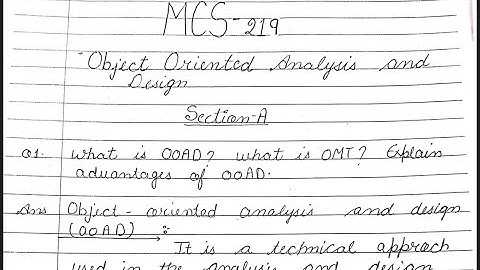 MCS-219
Object Oriented Analysis and
Design
Section-A
Q1. What is OOAD? What is OMT? Explain
advantages of OOAD.
Ans Object-oriented analysis and design
(OOAD) :-
It is a technical approach
used in the analysis and design